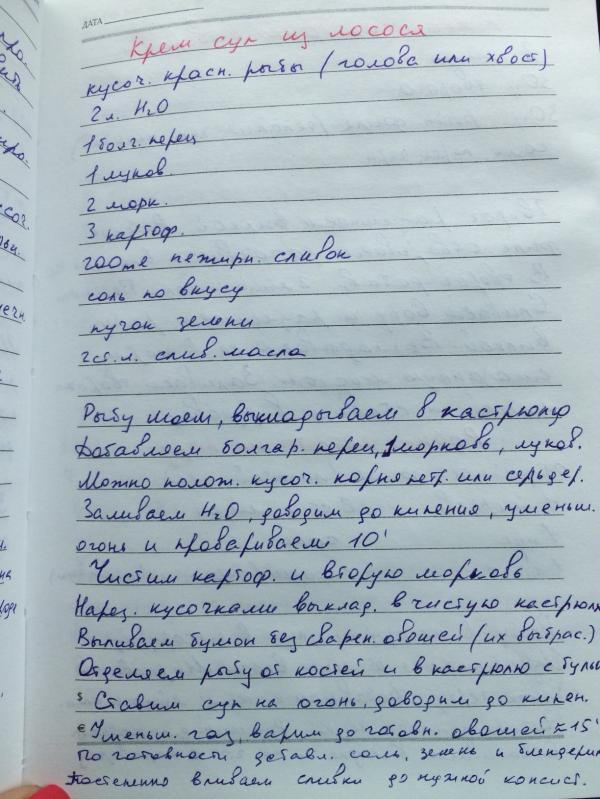 ДАТА
Крем суп из лосося
кусоч. красн. рыбы (голова или хвост)
2 л. H₂O
1 болг. перец
1 луков.
2 морк.
3 картоф.
200 нежирн. сливок
соль по вкусу
пучок зелени
2 ст. л. слив. масла
Рыбу моем, выкладываем в кастрюлю
Добавляем болгар. перец, 1 морковь, луков.
Можно полож. кусоч. корня петр. или сельдер.
Заливаем H₂O, доводим до кипения, уменьш.
огонь и провариваем 10'
Чистим картоф. и вторую морковь
Нарез. кусочками выклад. в чистую кастрюлю
Выливаем бульон без сварен. овощей (их выбрас.)
Отделяем рыбу от костей и в кастрюлю с бульо
$ Ставим суп на огонь, доводим до кипен.
€ Уменьш. газ, варим до готовн. овощей ≈ 15'
По готовности добавл. соль, зелень и блендерим
Постепенно вливаем сливки до нужной консист.